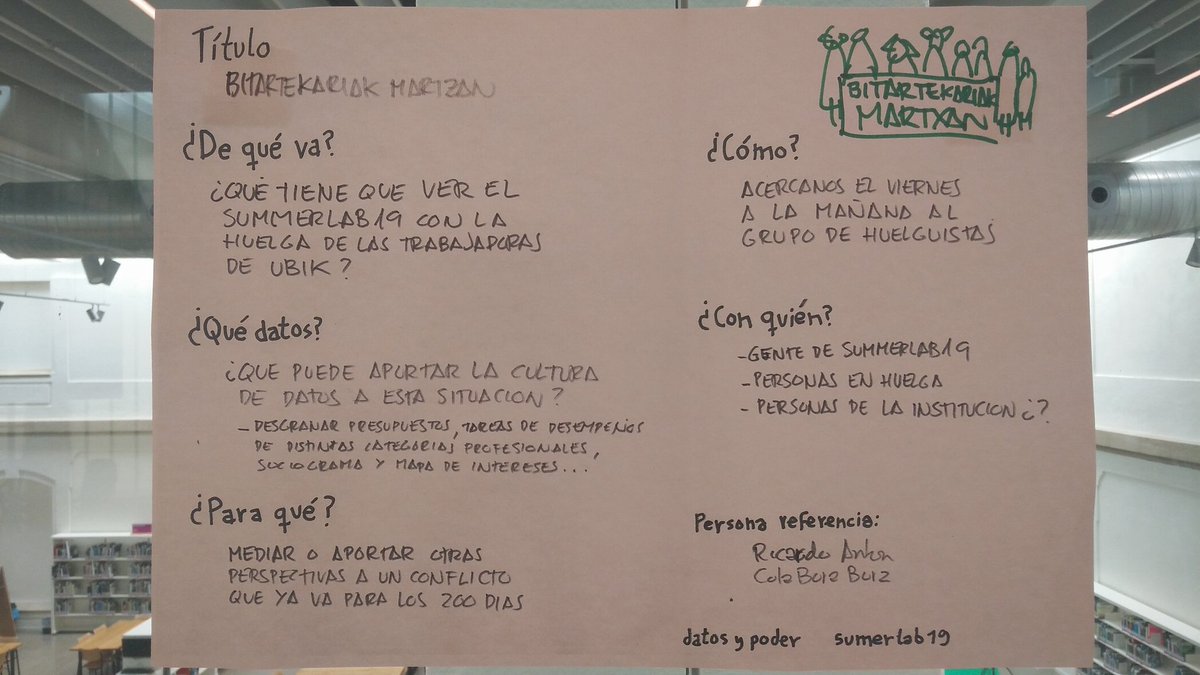 Título
BITARTEKARIAK MARTXAN
¿De qué va?
¿QUÉ TIENE QUE VER EL
SUMMERLAB19 CON LA
HUELGA DE LAS TRABAJADORAS
DE UBIK?
¿Qué datos?
¿QUE PUEDE APORTAR LA CULTURA
DE DATOS A ESTA SITUACION?
- DESGRANAR PRESUPUESTOS, TAREAS DE DESEMPEÑOS
DE DISTINTAS CATEGORIAS PROFESIONALES,
SOCIOGRAMA Y MAPA DE INTERESES...
¿Para qué?
MEDIAR O APORTAR OTRAS
PERSPECTIVAS A UN CONFLICTO
QUE YA VA PARA LOS 200 DIAS
BITARTEKARIAK
MARTXAN
¿Cómo?
ACERCANOS EL VIERNES
A LA MAÑANA AL
GRUPO DE HUELGUISTAS
¿Con quién?
- GENTE DE SUMMERLAB19
- PERSONAS EN HUELGA
- PERSONAS DE LA INSTITUCION ¿?
Persona referencia:
Ricardo Anton
datos y poder sumerlab19